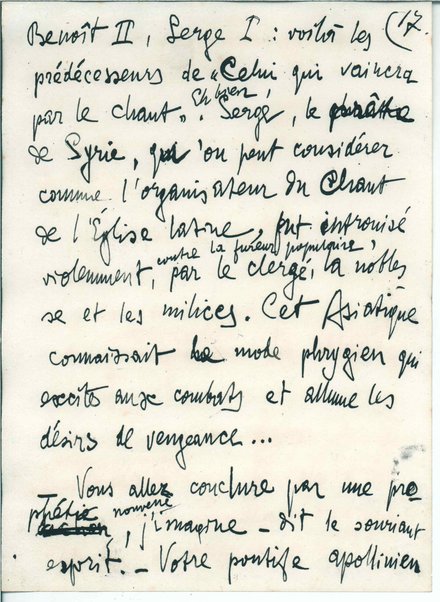 Benoît II, Serge I : voilà les (17.
prédécesseurs de "Celui qui vaincra
par le chant". Eh bien, Serge, le
de Syrie, qu'on peut considérer
comme l'organisateur du Chant
de l'Église latine, fut intronisé
violemment, contre la fureur populaire, par le clergé, la nobles
se et les milices. Cet Asiatique
connaissait le mode phrygien qui
excite aux combats et allume les
désirs de vengeance...
Vous allez conclure par une pro
phétie nouvelle, j'imagine - dit le souriant
esprit. - Votre pontife apollinien